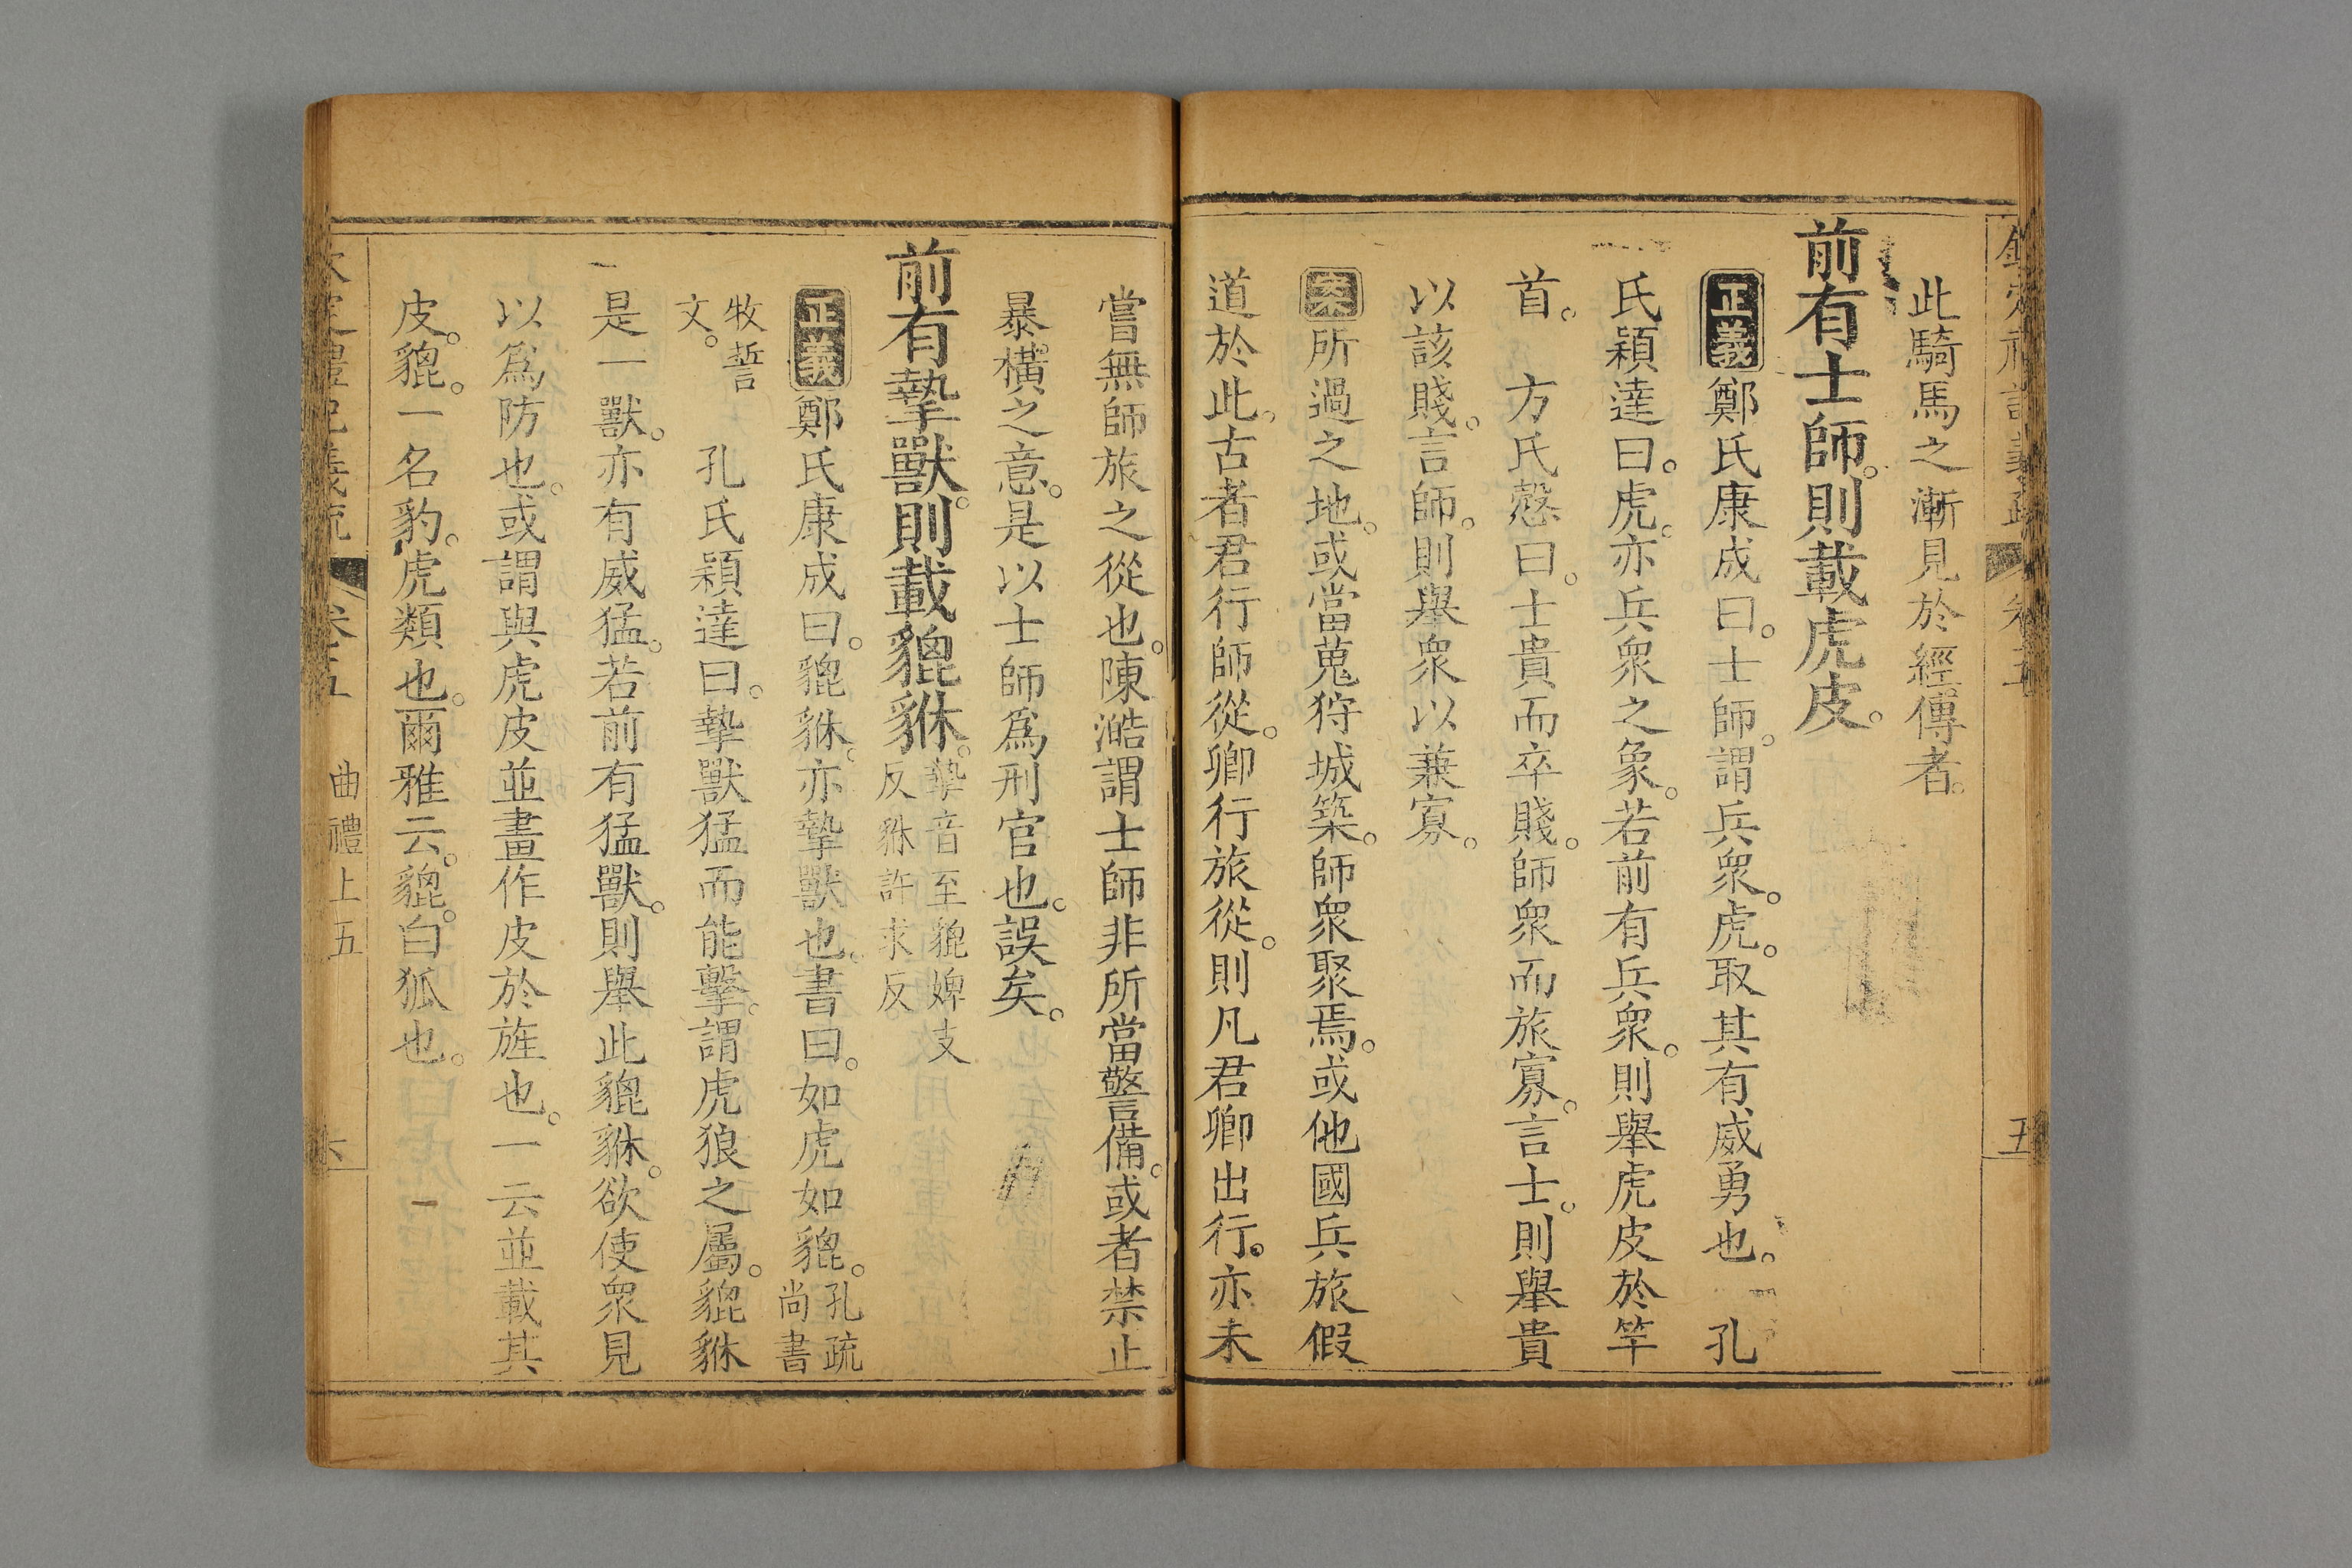 此騎馬之漸見於經傳者。
前有士師。則載虎皮。
正義鄭氏康成曰。士師。謂兵衆。虎。取其有威勇也。 孔
氏穎達曰。虎。亦兵衆之象。若前有兵衆。則舉虎皮於竿
首。 方氏慤曰。士貴而卒賤。師衆而旅寡。言士。則舉貴
以該賤。言師。則舉衆以兼寡。
案所過之地。或當蒐狩城築。師衆聚焉。或他國兵旅假
道於此。古者君行師從。卿行旅從。則凡君卿出行。亦未
嘗無師旅之從也。陳澔謂士師非所當警備。或者禁止
暴橫之意。是以士師爲刑官也。誤矣。
前有摯獸。則載貔貅。摯音至貔婢支
反貅許求反
正義鄭氏康成曰。貔貅。亦摯獸也。書曰。如虎如貔。孔疏
尚書
牧誓
文。 孔氏穎達曰。摯獸猛而能擊。謂虎狼之屬。貔貅
是一獸。亦有威猛。若前有猛獸。則舉此貔貅。欲使衆見
以爲防也。或謂與虎皮並畫作皮於旌也。一云並載其
皮。貔。一名豹。虎類也。爾雅云。貔。白狐也。
卷五 曲禮上五